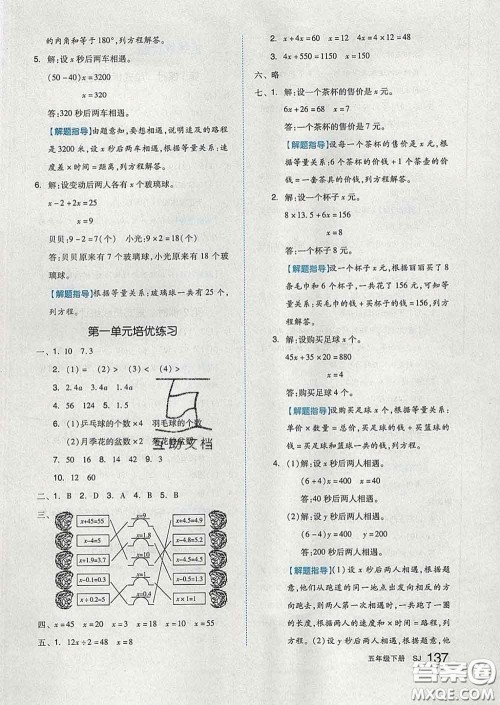 的内角和等于 180°,列方程解答。
5. 解:设 x 秒后两车相遇。
(50-40)x=3200
x=320
答:320 秒后两车相遇。
【解题指导】由题意知,要想相遇,说明追及的路程
是 3200 米,设 x 秒后两车相遇,根据等量关系:速
度差×时间=距离,列方程解答。
6. 解:设变动后两人各有 x 个玻璃球。
x-2+2x=25
x=9
贝贝:9-2=7(个) 小光:9×2=18(个)
答:贝贝原来有 7 个玻璃球,小光原来有 18 个
玻璃球。
【解题指导】根据等量关系:玻璃球一共有 25 个,
列方程解答。
第一单元培优练习
一、1. 10 7.3
2. (1)> (2)= (3)< (4)>
3. 2.4a 4.4a
4. 56 124 5. 1.5
6. (1)乒乓球的个数×4 羽毛球的个数
(2)月季花的盆数×2
7. 10 8. 14 42 9. 3
10. 12 60
二、1. B 2. D 3. A 4. B 5. B
三、
x+45=55
x-4=5
x+1.9=3.7
x-0.1=0.3
x÷0.2=5
x=9
x=10
x=1
x+4.5=4.9
x-4.8=5.2
x+4.5=9
x-0.5=1.3
x×1=1
四、x=45 x=20 x=6 x=20
五、1. 12x÷2=48 x=8
2. x+4=60 x+4×12=48 x=12
3. 4x÷550=1150 x=150
六、略
七、1. 解:设一个茶杯的售价是 x 元。
6x+26=68 x=7
答:一个茶杯的售价是 7 元。
【解题指导】设每一个茶杯的售价是 x 元,根据等
量关系:6 个茶杯的价钱+1 个茶壶的价
钱=一套茶具的价钱,列方程解答。
2. 解:设一个杯子 x 元。
8×13.5+6x=156
x=8
答:一个杯子 8 元。
【解题指导】设一个杯子 x 元,根据丽丽买了 8
条毛巾和 6 个杯子,一共花了 156 元,可得等量关
系:买毛巾的钱+买杯子的钱=156 元,列方程
解答。
3. 解:设购买足球 x 个。
45x+35x=880
x=11
答:购买足球 11 个。
【解题指导】设购买足球 x 个,根据等量关系:单
价×数量=总价,买足球的总价+买篮球的总
价=买足球和篮球一共的钱,列方程解答。
4. (1)解:设 x 秒后两人相遇。
(6+4)x=400 x=40
答:40 秒后两人相遇。
(2)解:设 y 秒后两人相遇。
(6-4)y=400 y=200
答:200 秒后两人相遇。
【解题指导】(1)设 x 秒后两人相遇,根据题
意,他们从跑道的同一地点出发都按相反方向
跑步,则两人第一次相遇时,一共跑了一圈的
长度,根据速度×时间=路程,列方程解答即
可。(2)设 y 秒后两人相遇,根据题意,他
五年级下册 SJ 137
互助文档
答案圈
MXQE.COM